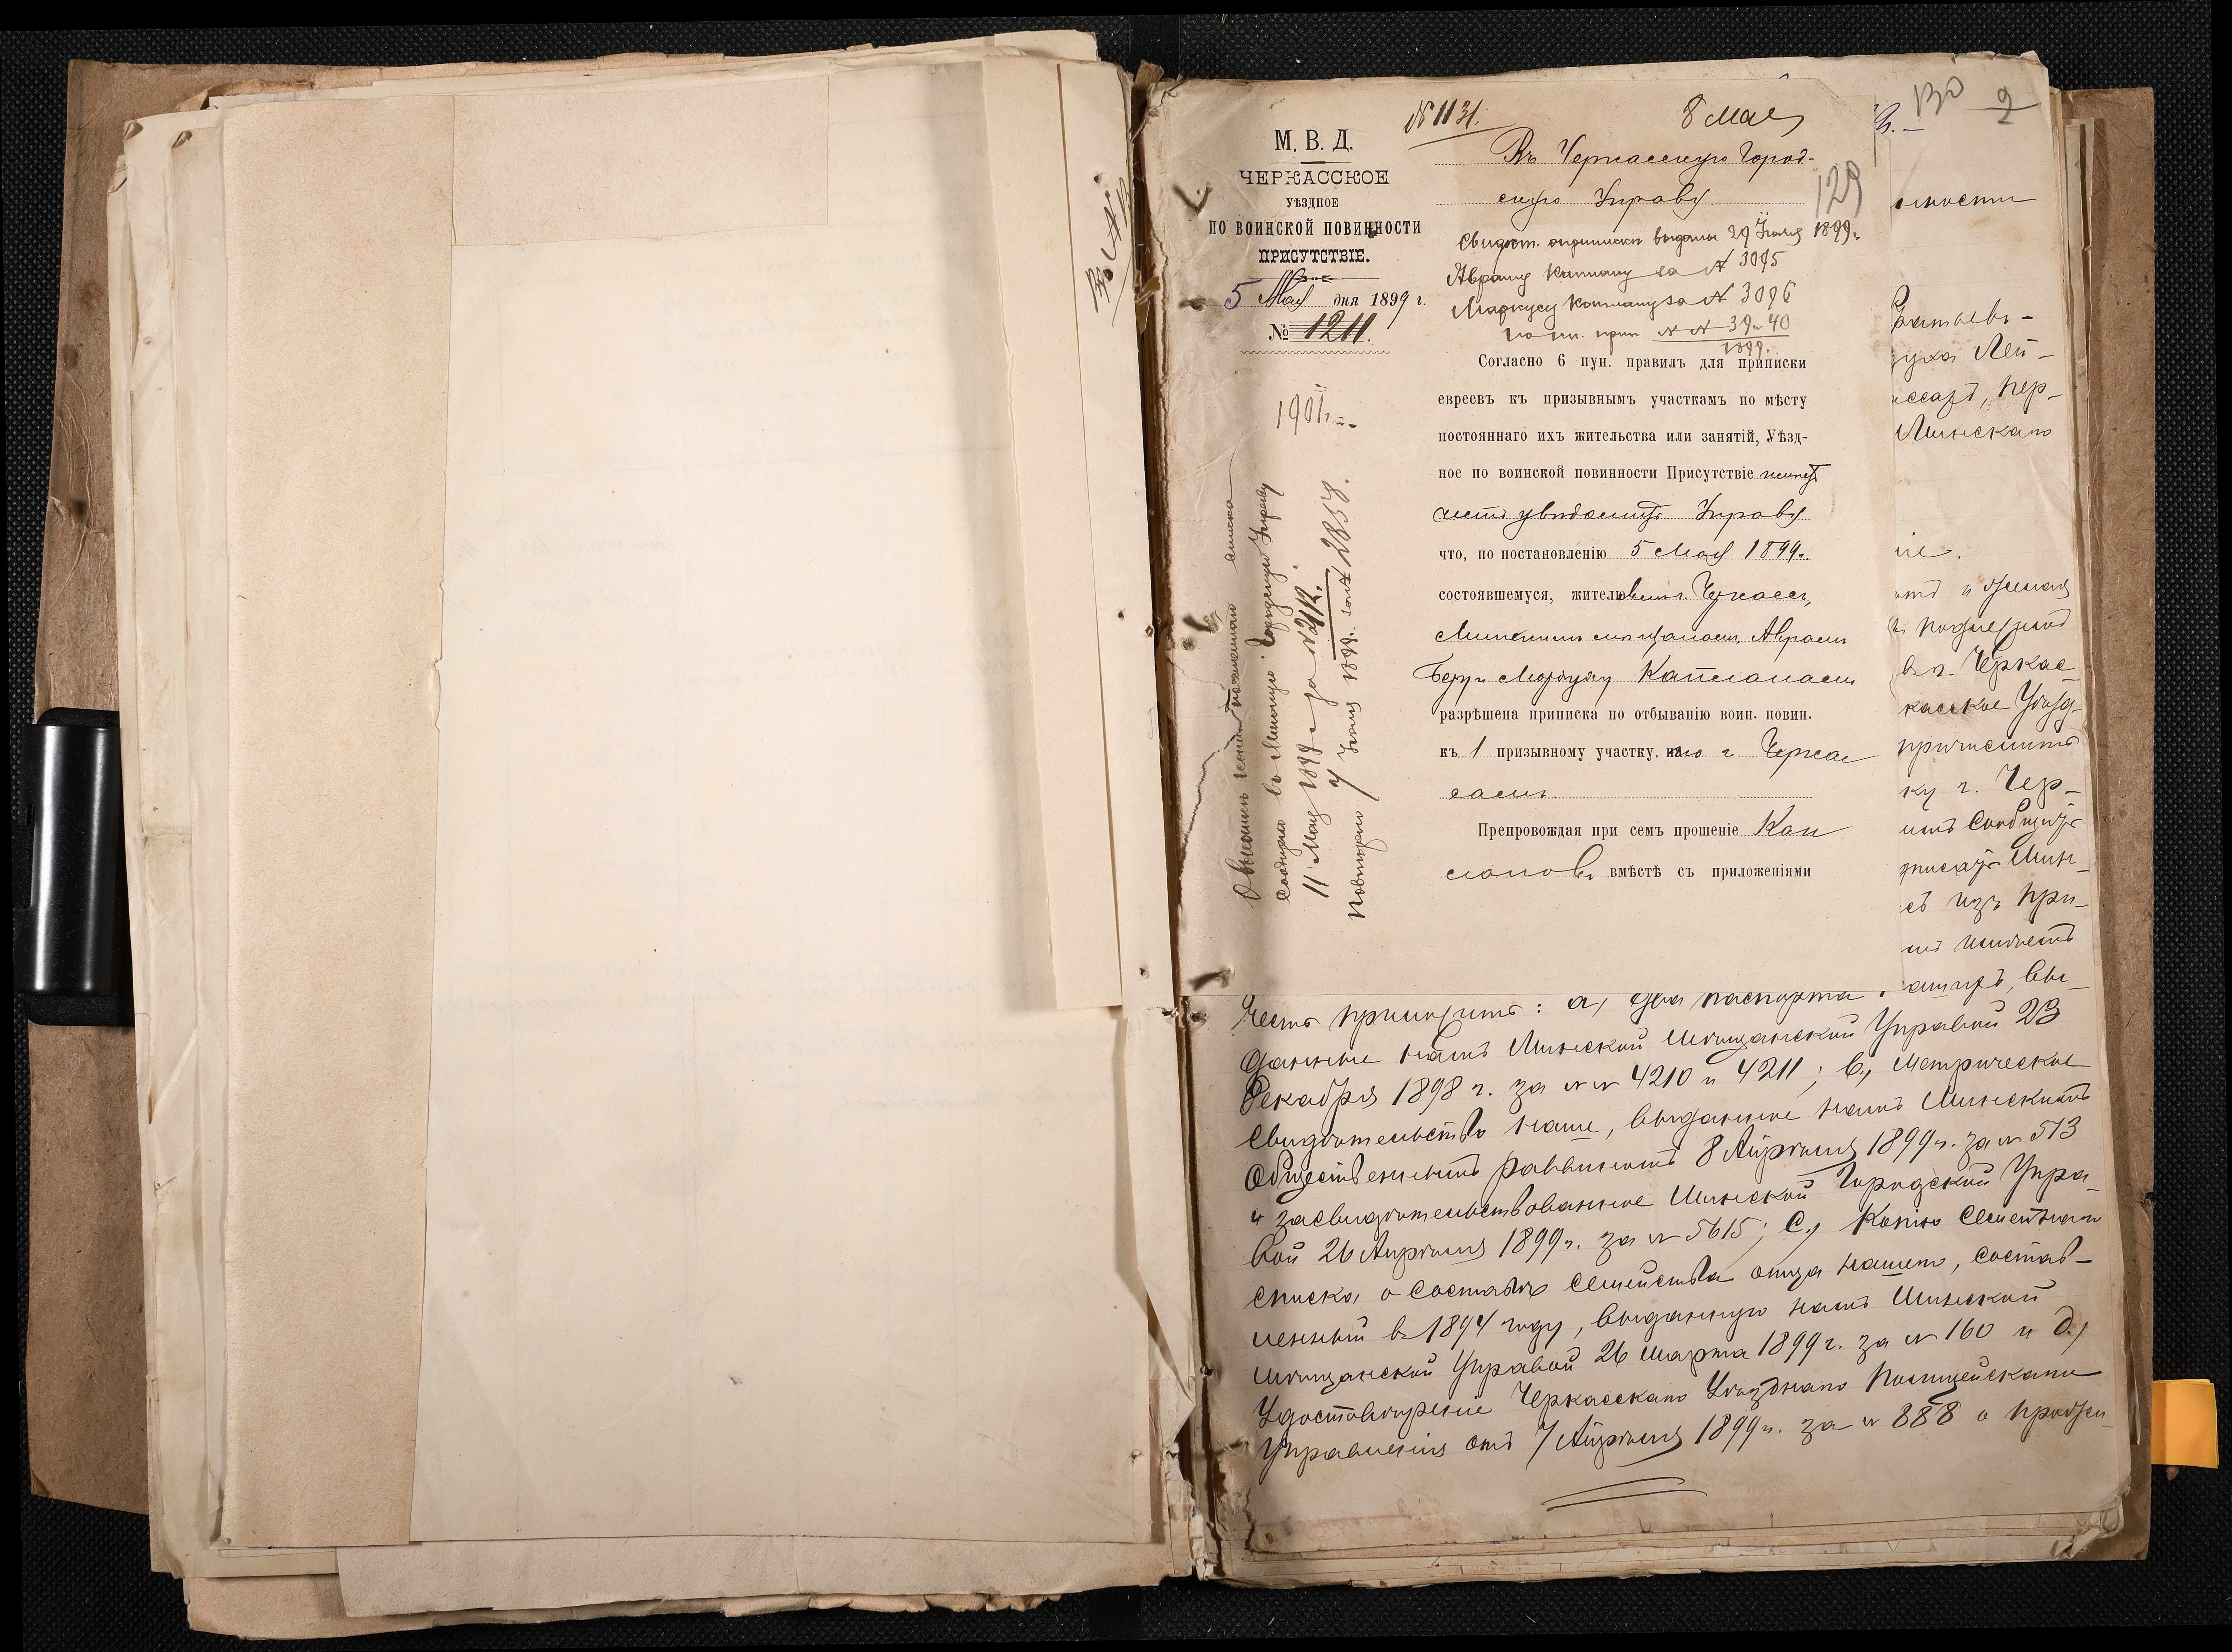 М. В. Д.
ЧЕРКАССКОЕ
УѢЗДНОЕ
ПО ВОИНСКОЙ ПОВИННОСТИ
ПРИСУТСТВІЕ.
5 Мая дня 1899 г.
№ 1211.
1901 г.
№ 1131.
8 Мая
130
2
129
Въ Черкасскую Город-
скую Управу
Свидѣт. о приписки выданы 29 Іюля 1899 г.
Авраму Каплану за № 3095
Маркусу Каплану за № 3096
№№ 39 и 40
1899.
Согласно 6 пун. правилъ для приписки
евреевъ къ призывнымъ участкамъ по мѣсту
постояннаго ихъ жительства или занятій, Уѣзд-
ное по воинской повинности Присутствіе имѣетъ
честь увѣдомить Управу
что, по постановленію 5 Мая 1899 г.
состоявшемуся, жителямъ г. Черкассъ,
Минскимъ мѣщанамъ, Авраму
Беру и Мордуху Капланамъ
разрѣшена приписка по отбыванію воин. повин.
къ 1 призывному участку, по г. Черкас
самъ.
Препровождая при семъ прошеніе Кап
лановъ вмѣстѣ съ приложеніями
списка
сообщено въ Минскую Городскую Управу
11 Мая 1899 г. за № 2112.
Повторено 7 Іюня 1899 г. за № 2857.
Лей-
Пер-
Минскаго
ніе.
въ г. Черкас
касское Уѣзд-
причислить
ку г. Чер-
имъ сообщить
Мин-
съ изъ при-
вы-
Честь приложить: а, два паспорта
данные намъ Минской Мѣщанской Управой 23
Декабря 1898 г. за №№ 4210 и 4211; в, Метрическое
Свидѣтельство наше, выданное намъ Минскимъ
Общественнымъ Раввиномъ 8 Апрѣля 1899 г. за № 513
и засвидѣтельствованное Минской Городской Упра-
вой 26 Апрѣля 1899 г. за № 5615; с, Копію Семейнаго
списка о составѣ семейства отца нашего, состав-
ленный въ 1894 году, выданную намъ Минской
Мѣщанской Управой 26 Марта 1899 г. за № 160 и д,
Удостовѣреніе Черкасскаго Уѣзднаго Полицейскаго
Управленія отъ 7 Апрѣля 1899 г. за № 888 о прожи-